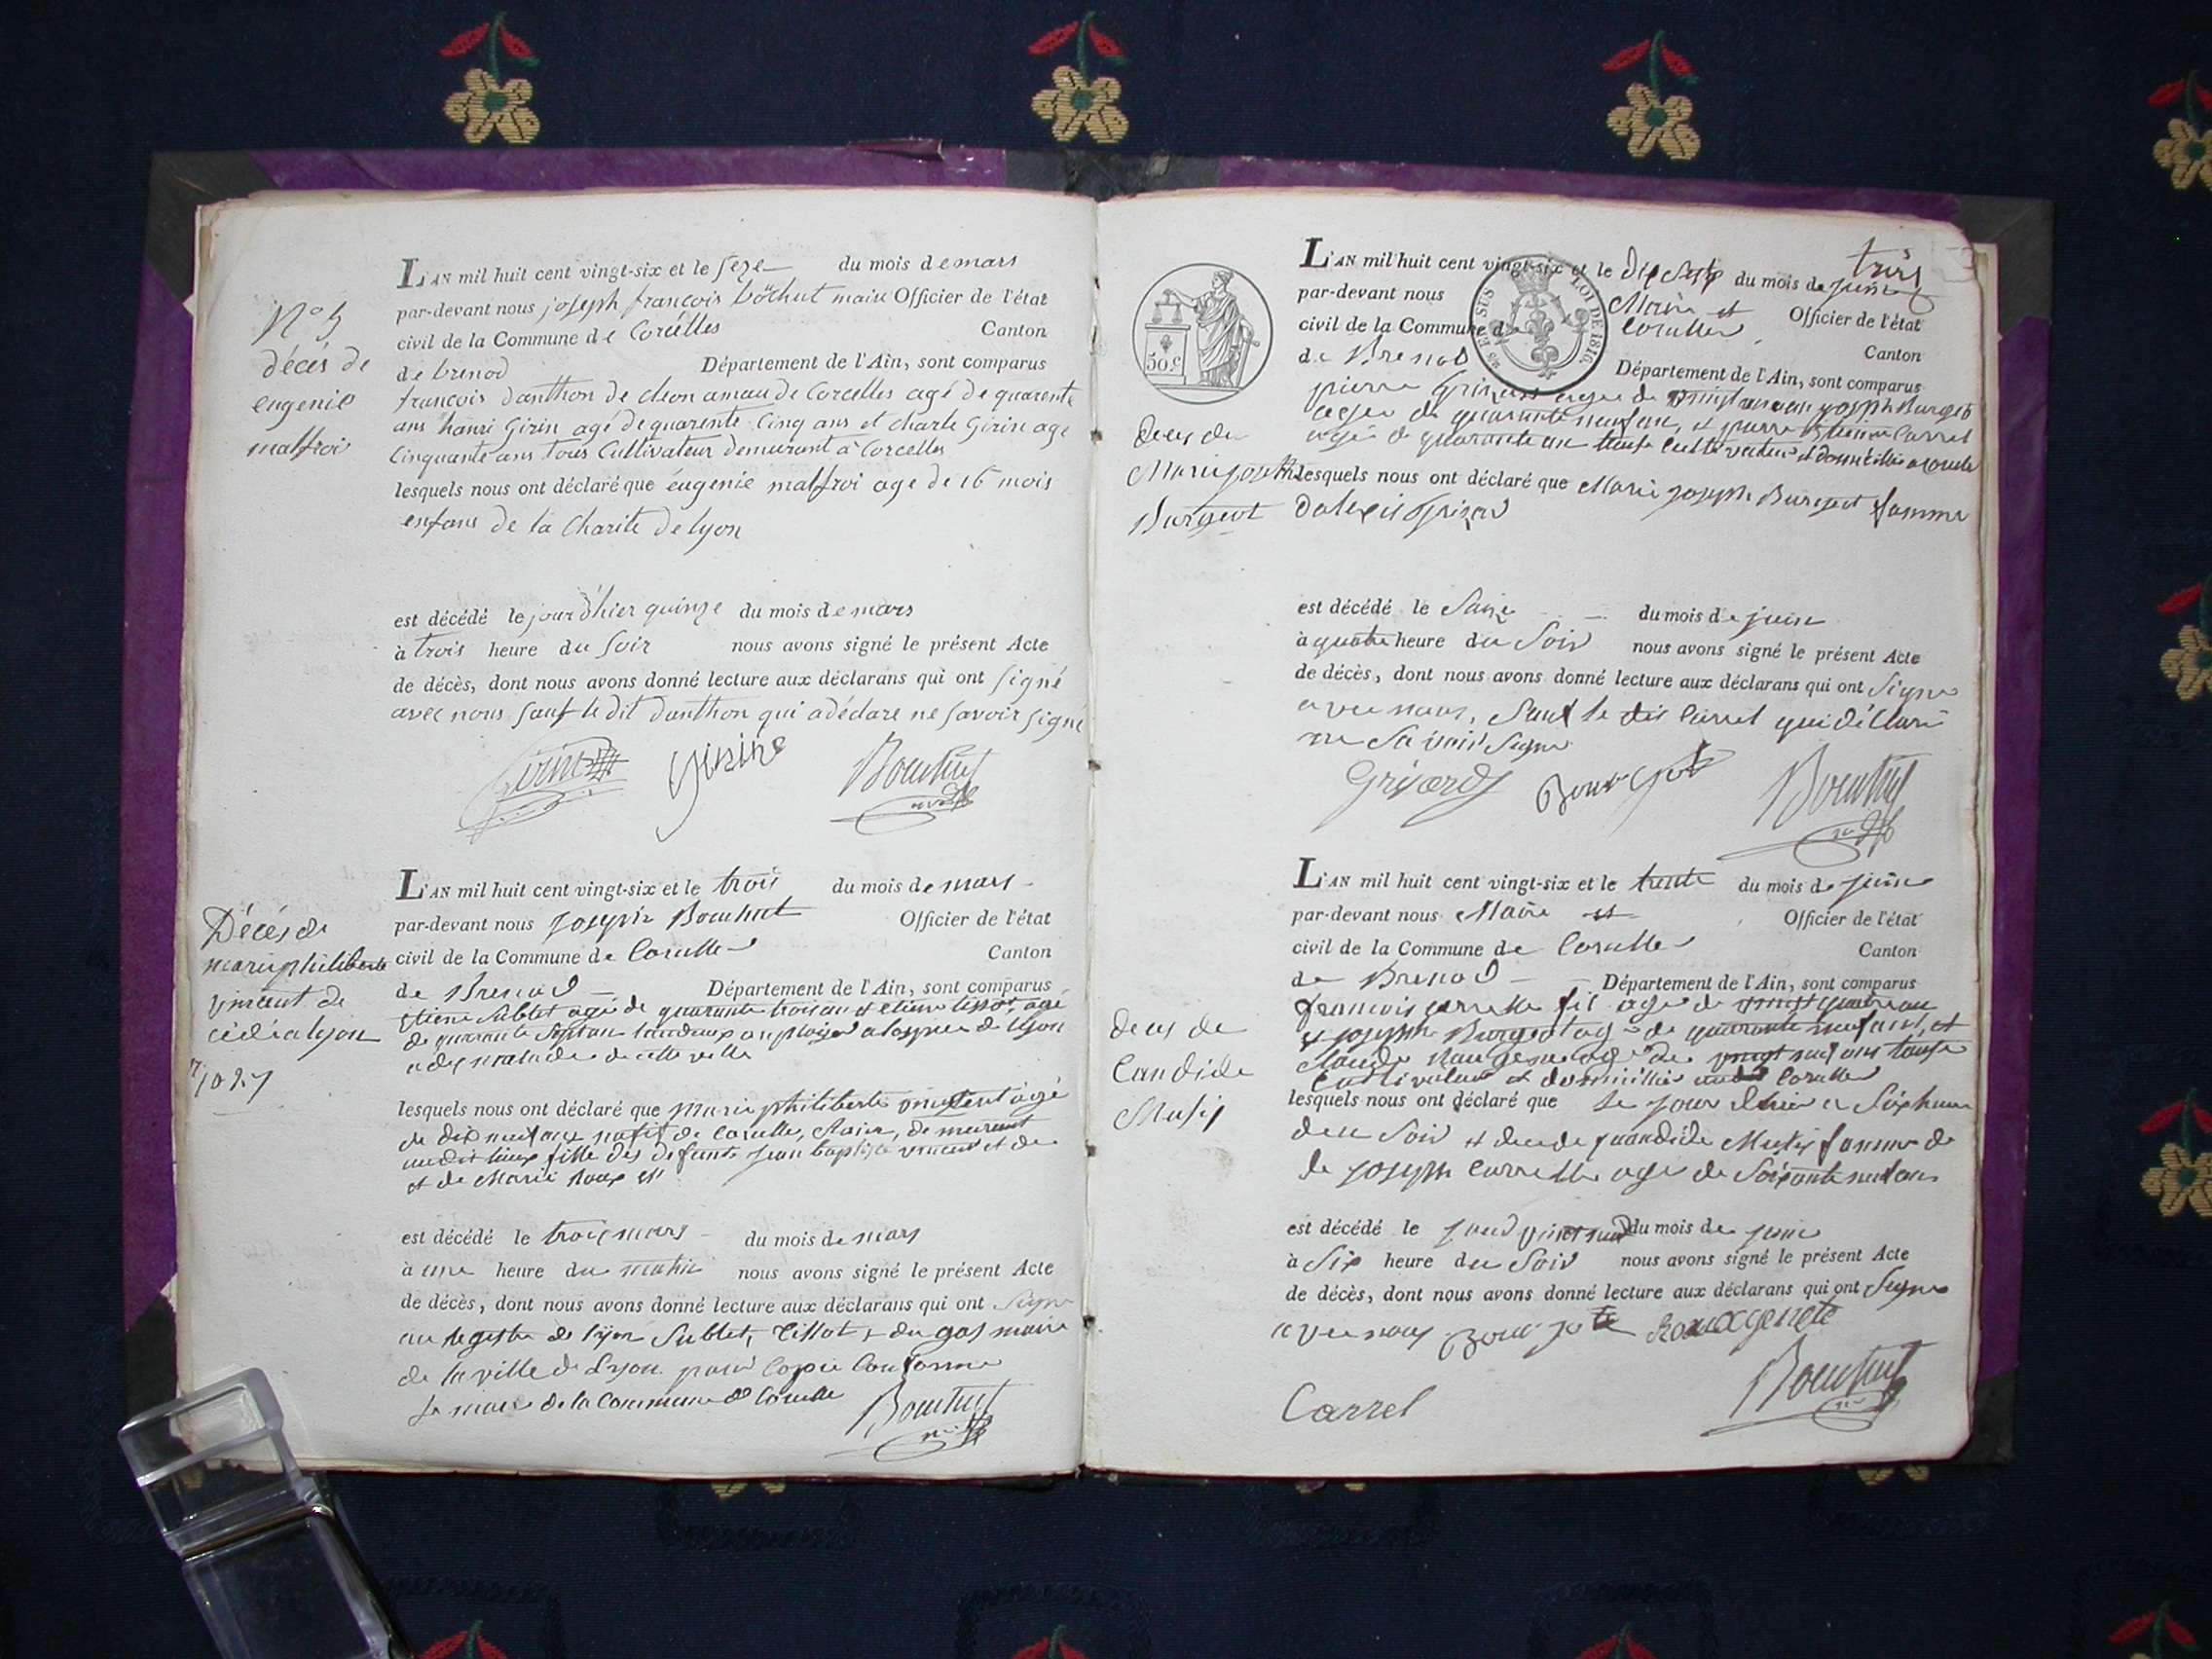 N° 5
décés de
eugenie
malfroi
L'AN mil huit cent vingt-six et le seze du mois de mars
par-devant nous joseph françois bochut maire Officier de l'état
civil de la Commune de Corcelles Canton
de brenod Département de l'Ain, sont comparus
francois danthon de cleon amau de Corcelles agé de quarente
ans hanri Girin agé de quarente Cinq ans et charle Girin age
Cinquante ans tous Cultivateur demeurant à Corcelles
lesquels nous ont déclaré que éugenie malfroi age de 16 mois
enfans de la Charite de lyon
est décédé le jour d'hier quinze du mois de mars
à trois heure du soir nous avons signé le présent Acte
de décès, dont nous avons donné lecture aux déclarans qui ont signé
avec nous sauf le dit danthon qui a déclare ne savoir signé
Girin Girin Bouchut
Décés de
marie philiberte
vincent de
cédé a lyon
L'AN mil huit cent vingt-six et le trois du mois de mars
par-devant nous Joseph Bouchut Officier de l'état
civil de la Commune de Corcelle Canton
de Brenod Département de l'Ain, sont comparus
Etiene Sublet agé de quarante trois an et etiene tissot, agé
de quarante sept an tous deux employer a lospice de lyon
de cette ville
lesquels nous ont déclaré que marie philiberte vincent agé
de dix neuf ans natif de Corcelle, demeurant
audit lieux fille des defunts jean baptiste vincent et de
et de Marie Roux
est décédé le trois mars du mois de mars
à une heure du matin nous avons signé le présent Acte
de décès, dont nous avons donné lecture aux déclarans qui ont signe
au registre de lyon Sublet, Tissot, du gas maire
de la ville de Lyon pour Copie Conforme
le maire de la Commune de Corcelle Bouchut
trois
L'AN mil huit cent vingt-six et le dix sept du mois de juin
par-devant nous Maire et Officier de l'état
civil de la Commune de Corcelle Canton
de Brenod Département de l'Ain, sont comparus
50.c
LOI DE 1816
deces de
Marie joseph
Burgeot
pierre Grinard agée de vingt un an joseph Burgeot
agée de quarante neuf an, et pierre Etiene Carrel
agée de quarante an touts cultivateur et domicillié a Corcelle
lesquels nous ont déclaré que Marie joseph Burgeot famme
dalexis Grinard
est décédé le Saize du mois de juin
à quatre heure du Soir nous avons signé le présent Acte
de décès, dont nous avons donné lecture aux déclarans qui ont Signe
avec nous, Sauf le dit Carrel qui déclare
ne Savoir Signe
Bouchut
L'AN mil huit cent vingt-six et le trente du mois de juin
par-devant nous Maire et Officier de l'état
civil de la Commune de Corcelle Canton
de Brenod Département de l'Ain, sont comparus
deces de
Candide
francois fil age de vingt quatre an
et joseph Burgeot age de quarante neuf ans, et
Claude age de vingt neuf ans touts
Cultivateur et domicillié Corcelle
lesquels nous ont déclaré que le jour dhier a Six heure
deu Soir et decede famme de
de joseph age de Soixante neuf ans
est décédé le vingt neuf du mois de juin
à Six heure du Soir nous avons signé le présent Acte
de décès, dont nous avons donné lecture aux déclarans qui ont Signe
avec nous
Carrel Bouchut